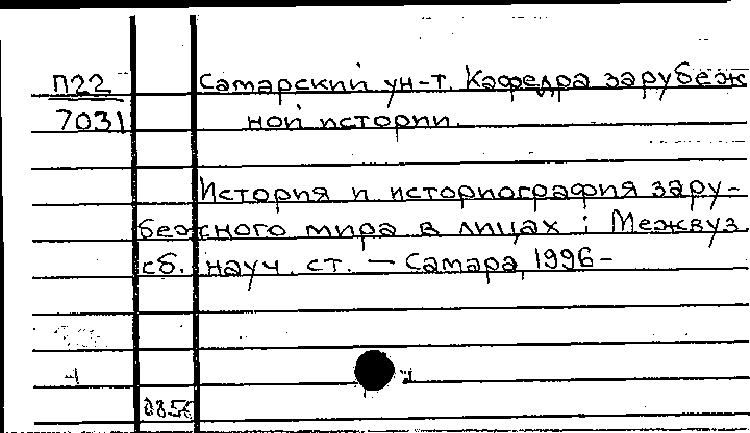 П22
7031
Самарский ун-т. Кафедра зарубеж
ной истории.
История и историография зару-
бежного мира в лицах : Межвуз.
сб. науч. ст. — Самара, 1996-